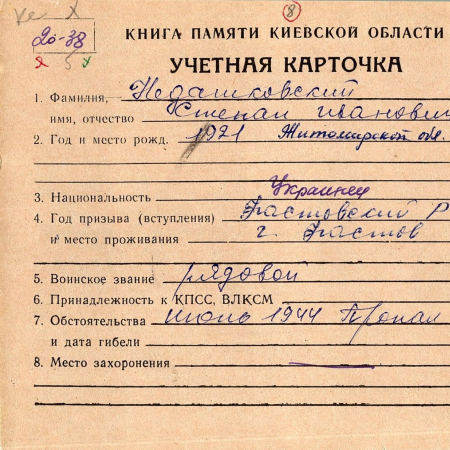 8
20-38
КНИГА ПАМЯТИ КИЕВСКОЙ ОБЛАСТИ
УЧЕТНАЯ КАРТОЧКА
1. Фамилия, Недашковский
имя, отчество Степан Иванович
2. Год и место рожд. 1921 Житомирской обл.
3. Национальность Украинец
4. Год призыва (вступления) Фастовский Р
и место проживания г. Фастов
5. Воинское звание рядовой
6. Принадлежность к КПСС, ВЛКСМ
7. Обстоятельства июнь 1944 Пропал
и дата гибели
8. Место захоронения